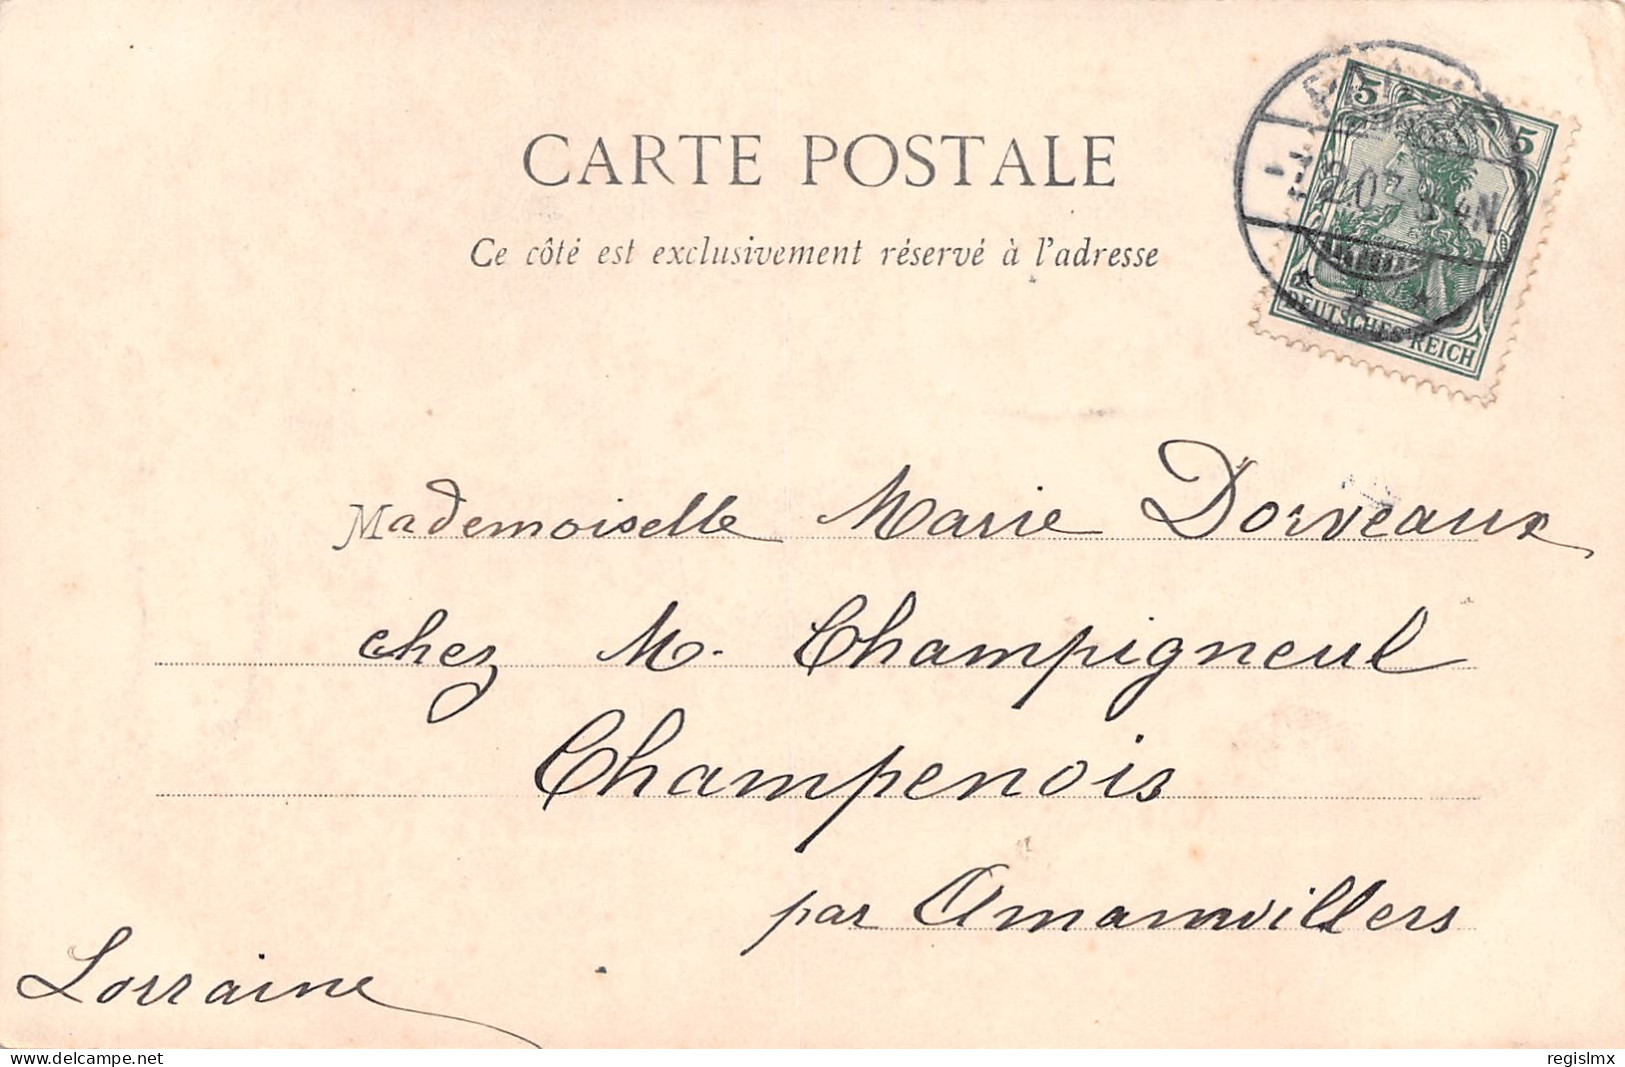 CARTE POSTALE
Ce côté est exclusivement réservé à l'adresse
5 5
DEUTSCHES REICH
Mademoiselle Marie Dorveaux
chez M. Champigneul
Champenois
par Amanvillers
Lorraine
www.delcampe.net
regislmx